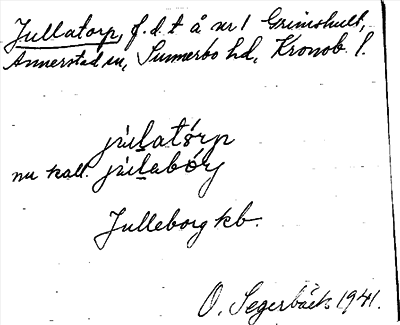 Jullatorp, f.d.t å nr 1 Grimshult,
Annerstad sn, Sunnerbo hd, Kronob. l.
júlatórp
nu kall. júlabórj
Julleborg kb.
O. Segerbäck 1941.